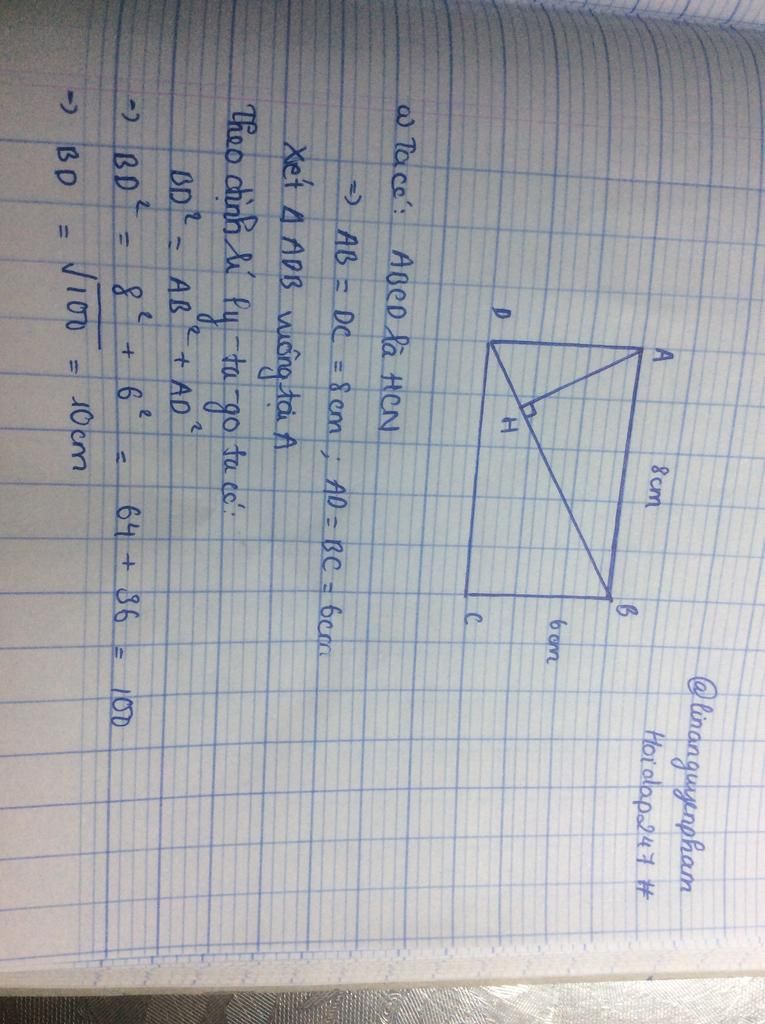 @linanguyenpham
Hoidap247 #
A
8cm
B
6cm
H
D
C
a) Ta có: ABCD là HCN
=> AB = DC = 8cm ; AD = BC = 6cm
Xét Δ ADB vuông tại A
Theo định lí Py-ta-go ta có:
BD² = AB² + AD²
=> BD² = 8² + 6² = 64 + 36 = 100
=> BD = √100 = 10cm